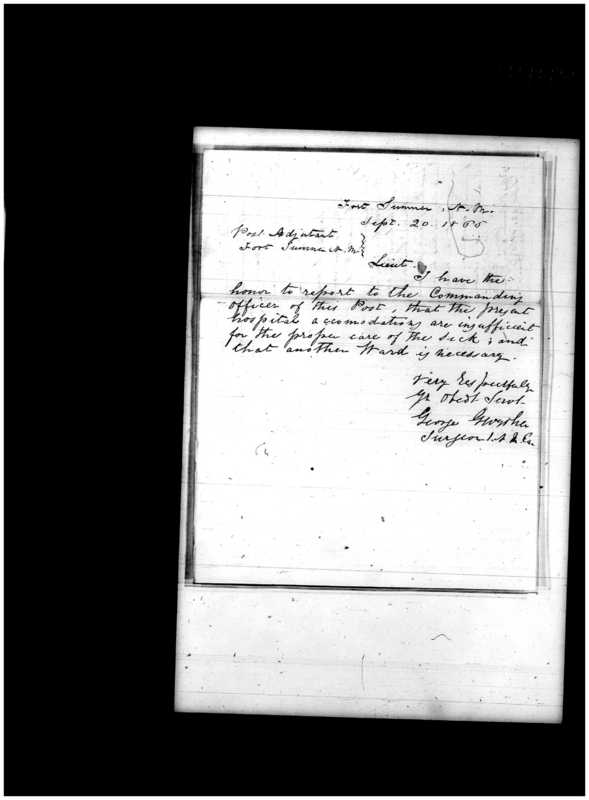 Fort Sumner, N.M.
Sept. 20. 1865
Post Adjutant
Fort Sumner N.M.
Lieut.
I have the
honor to report to the Commanding
officer of this Post, that the present
hospital accomodations are insufficient
for the proper care of the sick; and
that another Ward is necessary.
Very Respectfully
Yr Obedt Servt
George Gwyther
Surgeon 1st